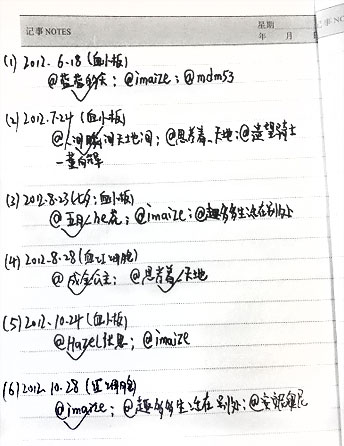 记事NOTES
星期
年 月
记事NO
(1) 2012.6.18 (血小板)
@蓝蓝的天; @imaize; @mdm53
(2) 2012.7.24 (血小板)
@人间瞬间天地间; @思若着天地; @遥望骑士
(3) 2012.8.23 血小板)
@五月 @imaize; @趣多多生活在别处
(4) 2012.8.28 (血红细胞)
公主; @思若着天地
(5) 2012.10.24 (血小板)
@Hazel @imaize
(6) 2012.10.28 (红细胞)
@imaize; @趣多多生活在别处;